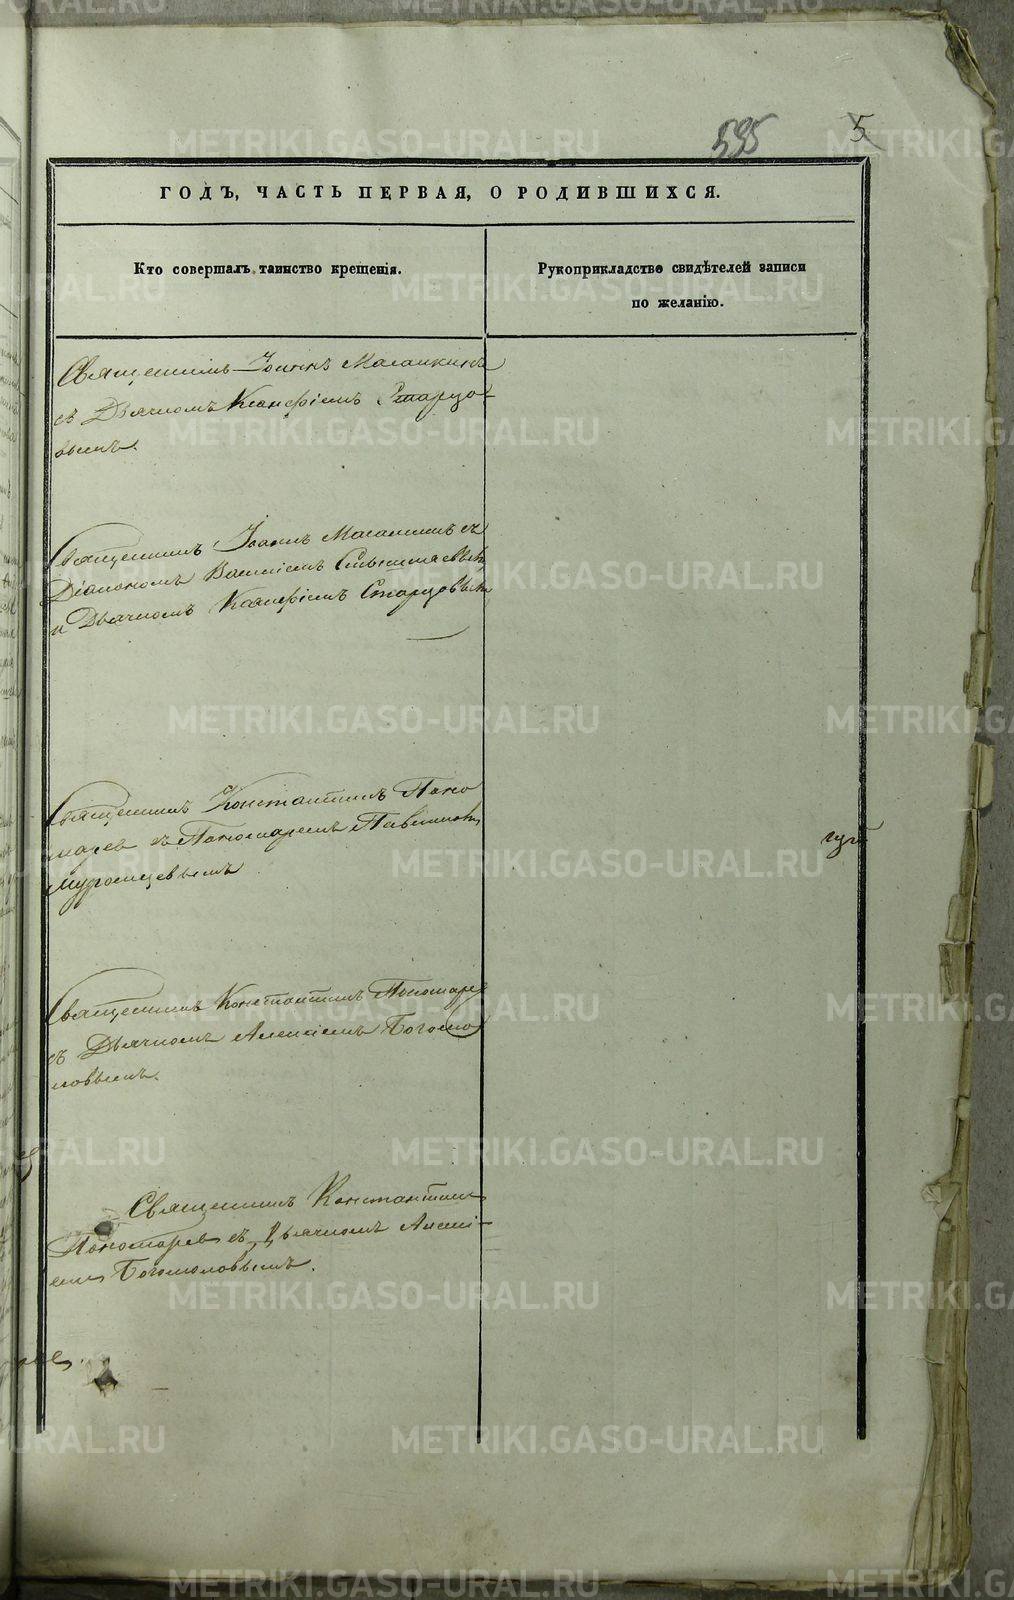 595 5
ГОДЪ, ЧАСТЬ ПЕРВАЯ, О РОДИВШИХСЯ.
Кто совершалъ таинство крещенія.
Рукоприкладство свидѣтелей записи
по желанію.
Священникъ Іоаннъ
съ Дьячкомъ Ксенофонтомъ Старцо-
вымъ.
Священникъ Іоаннъ съ
Діакономъ Василіемъ
и Дьячкомъ Старцовымъ
Священникъ Константинъ Поно
марев съ Пономаремъ
Муромцевымъ
Священникъ Константинъ Пономарев
съ Дьячкомъ Алексіемъ Богомо
ловымъ.
Священникъ Константинъ
Пономарев съ Дьячкомъ Алексі-
емъ Богомоловымъ.
METRIKI.GASO-URAL.RU